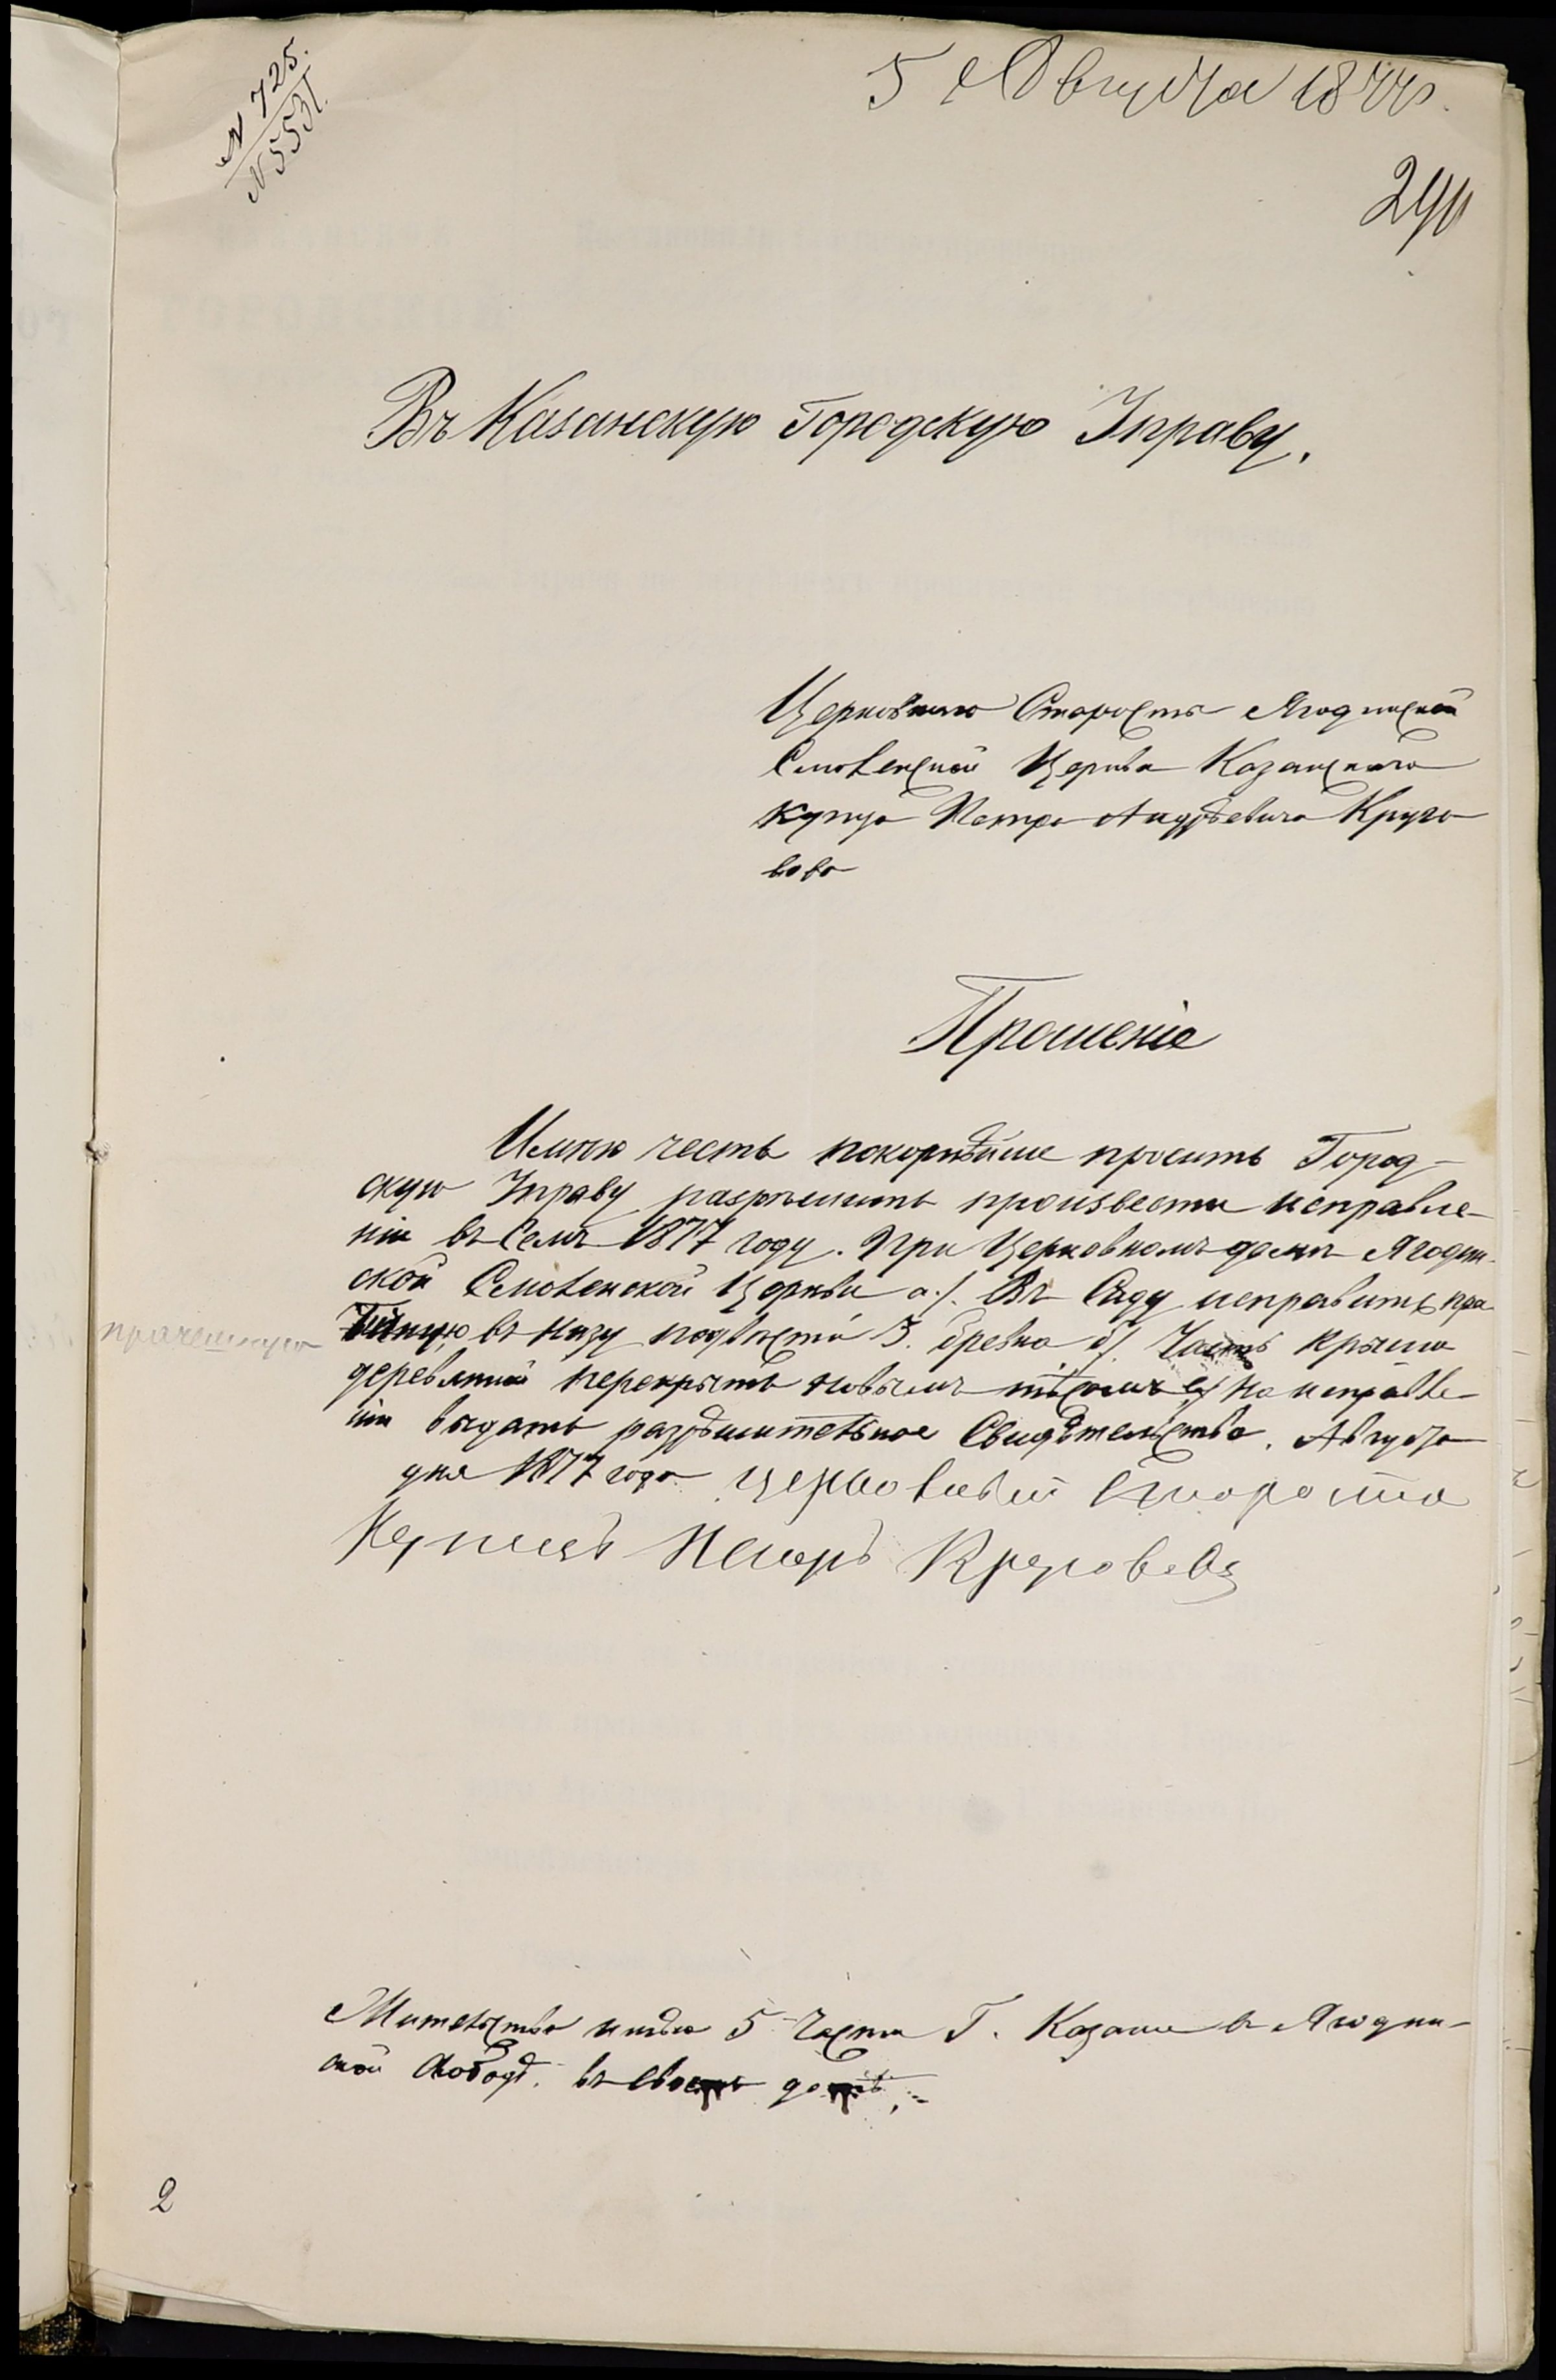 N 725.
N 5531.
5 Августа 1877 г.
290
Въ Казанскую Городскую Управу.
Церковнаго Старосты Ягодинской
Смоленской Церкви Казанскаго
купца Петра Андрѣевича Круго
вова
Прошеніе
Имѣю честь покорнѣйше просить Город-
скую Управу разрѣшить произвести исправле-
ніи въ Семъ 1877 году. При Церковномъ домѣ Ягодин-
ской Смоленской Церкви а./. Въ Саду исправить пра
прачешную
въ низу подвѣсти 3. бревна б/. Часть крыши
деревянной перекрыть новымъ тѣсомъ на исправле-
ніи выдать разрѣшительное Свидѣтельство. Августа
дня 1877 года Церковный Староста
Купецъ Петръ Кругововъ
Жительство имѣю 5 Части Г. Казани въ Ягодин-
ской Слободѣ. въ своемъ домѣ.
2